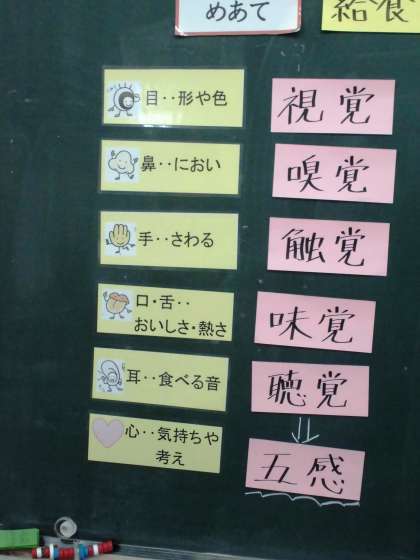 めあて
給食
目‥形や色
視覚
鼻‥におい
嗅覚
手‥さわる
触覚
口・舌‥
おいしさ・熱さ
味覚
耳‥食べる音
聴覚
心‥気持ちや
考え
五感